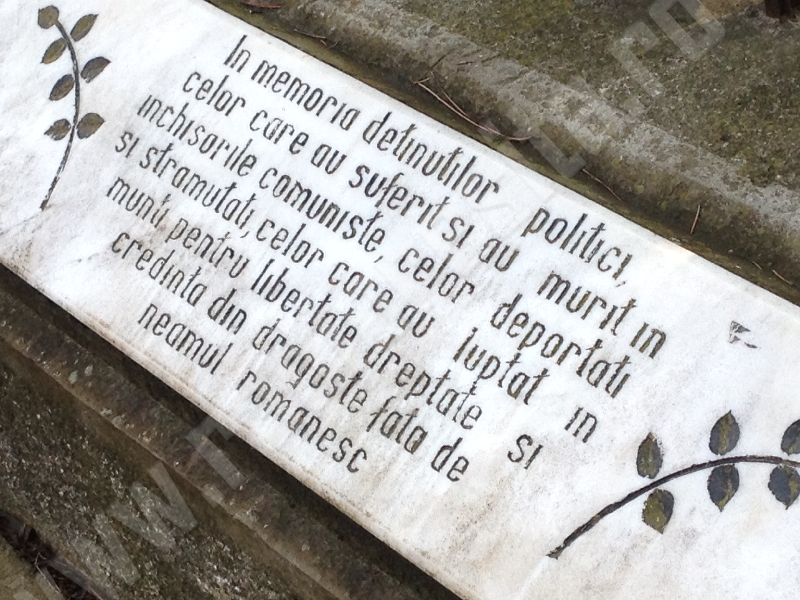 In memoria detinutilor politici,
celor care au suferit si au murit in
inchisorile comuniste, celor deportati
si stramutati, celor care au luptat in
munti pentru libertate dreptate si
credinta din dragoste fata de
neamul romanesc